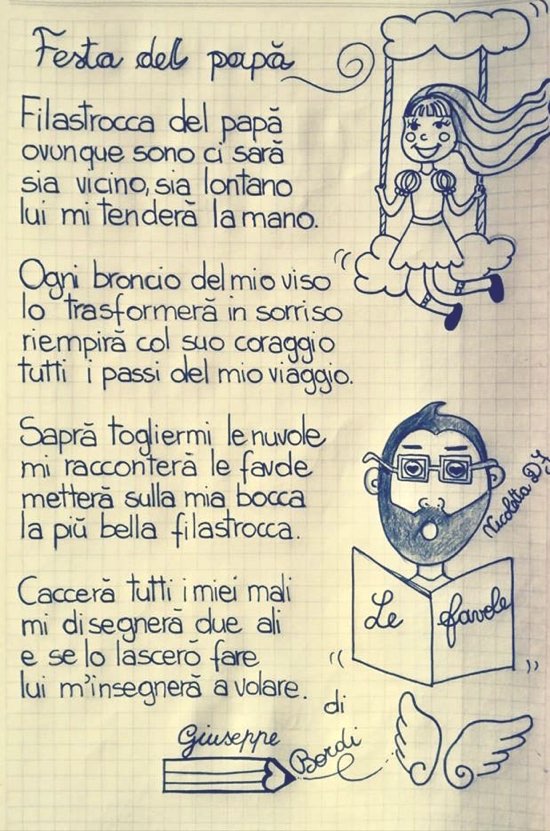 Festa del papă
Filastrocca del papă
ovunque sono ci sară
sia vicino, sia lontano
lui mi tenderă la mano.
Ogni broncio del mio viso
lo trasformeră in sorriso
riempiră col suo coraggio
tutti i passi del mio viaggio.
Sapră togliermi le nuvole
mi racconteră le favole
metteră sulla mia bocca
la piŭ bella filastrocca.
Cacceră tutti i miei mali
mi disegneră due ali
e se lo lascerŏ fare
lui m'insegneră a volare.
di
Giuseppe
Bordi
Le favole
Nicoletta D.